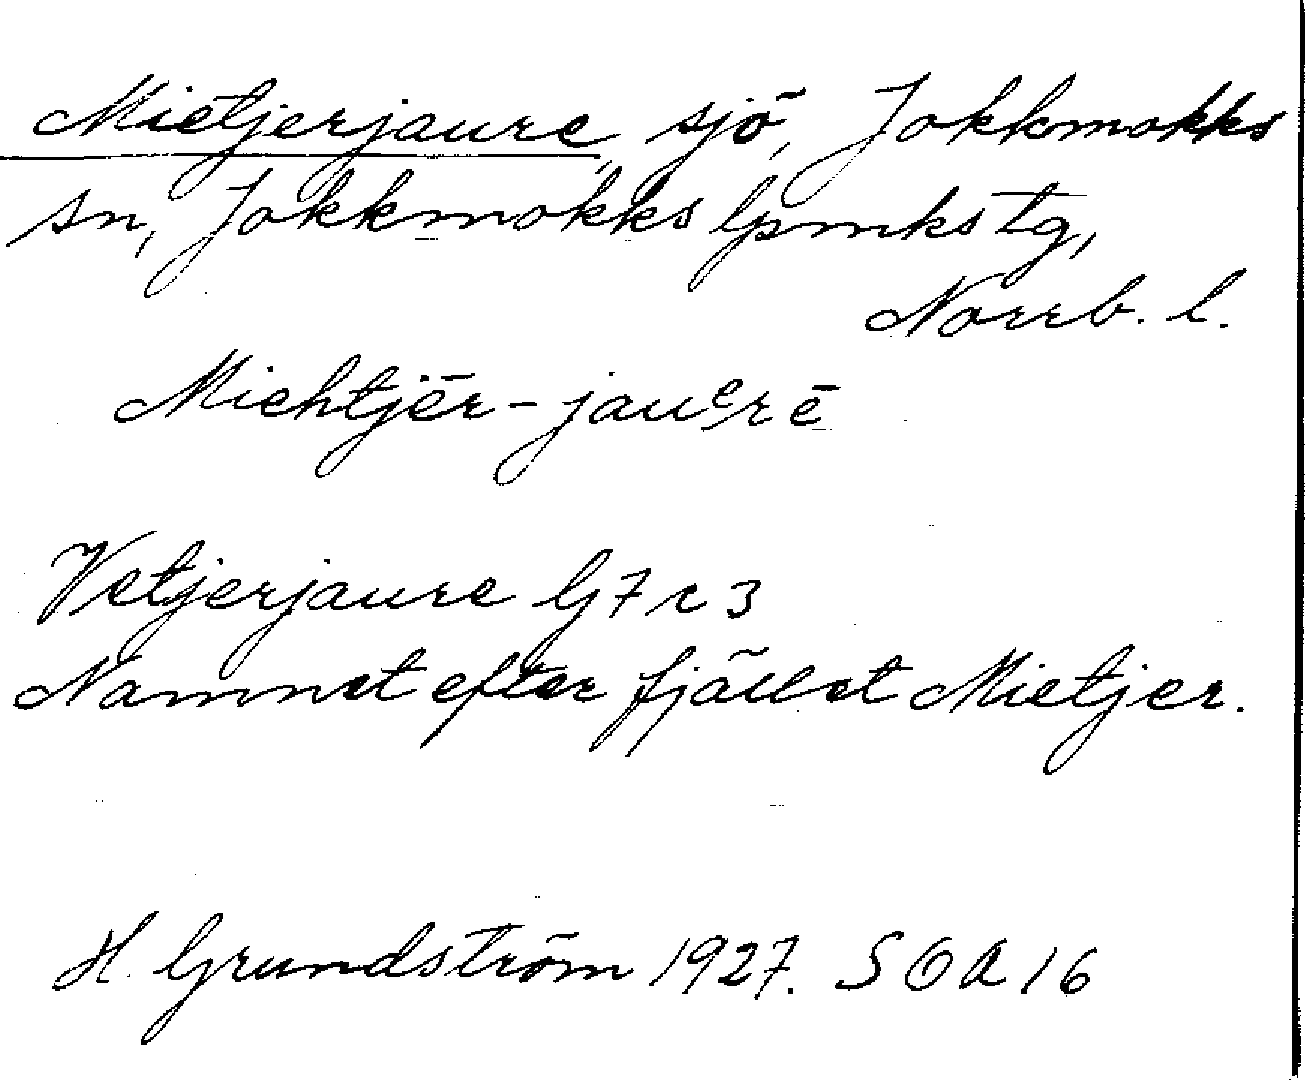 Mietjerjaure, sjö, Jokkmokks
sn, Jokkmokks lpmks tg,
Norrb. l.
Miehtjēr-jauᵉrē
Vetjerjaure G7 r 3
Namnet efter fjället Mietjer.
H. Grundström 1927. SOA 16